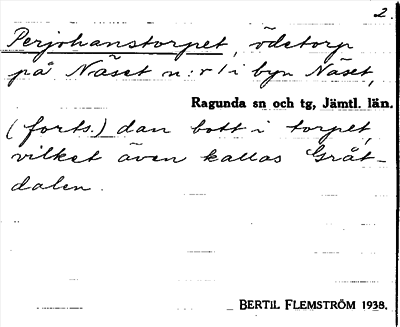 2.
Perjohanstorpet, ödetorp
på Näset n:r 1 i byn Näset,
Ragunda sn och tg, Jämtl. län.
(forts.) dan bott i torpet,
vilket även kallas Gråt-
dalen.
BERTIL FLEMSTRÖM 1938.